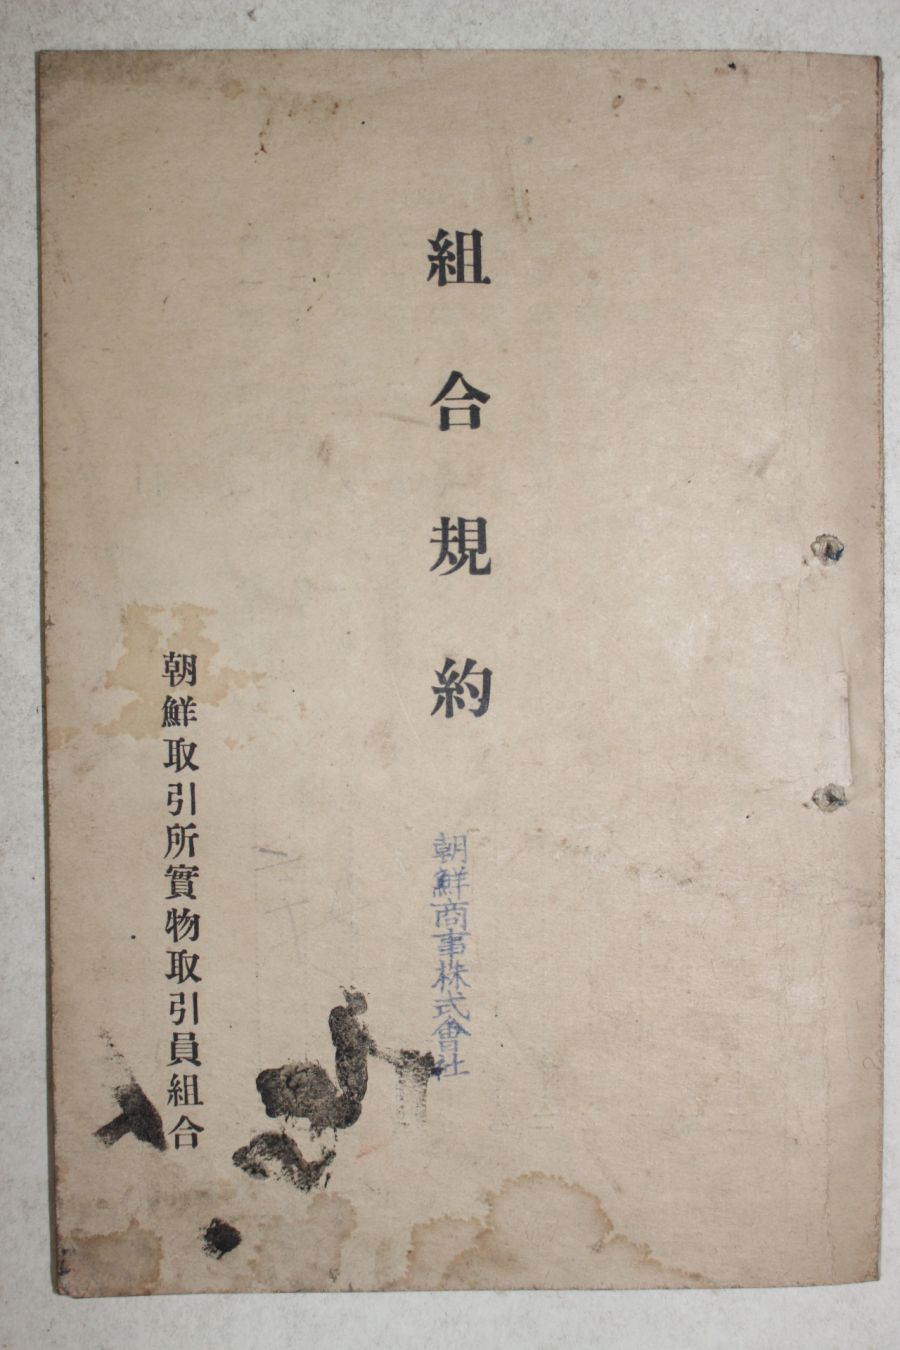 組合規約
朝鮮商事株式會社
朝鮮取引所實物取引員組合